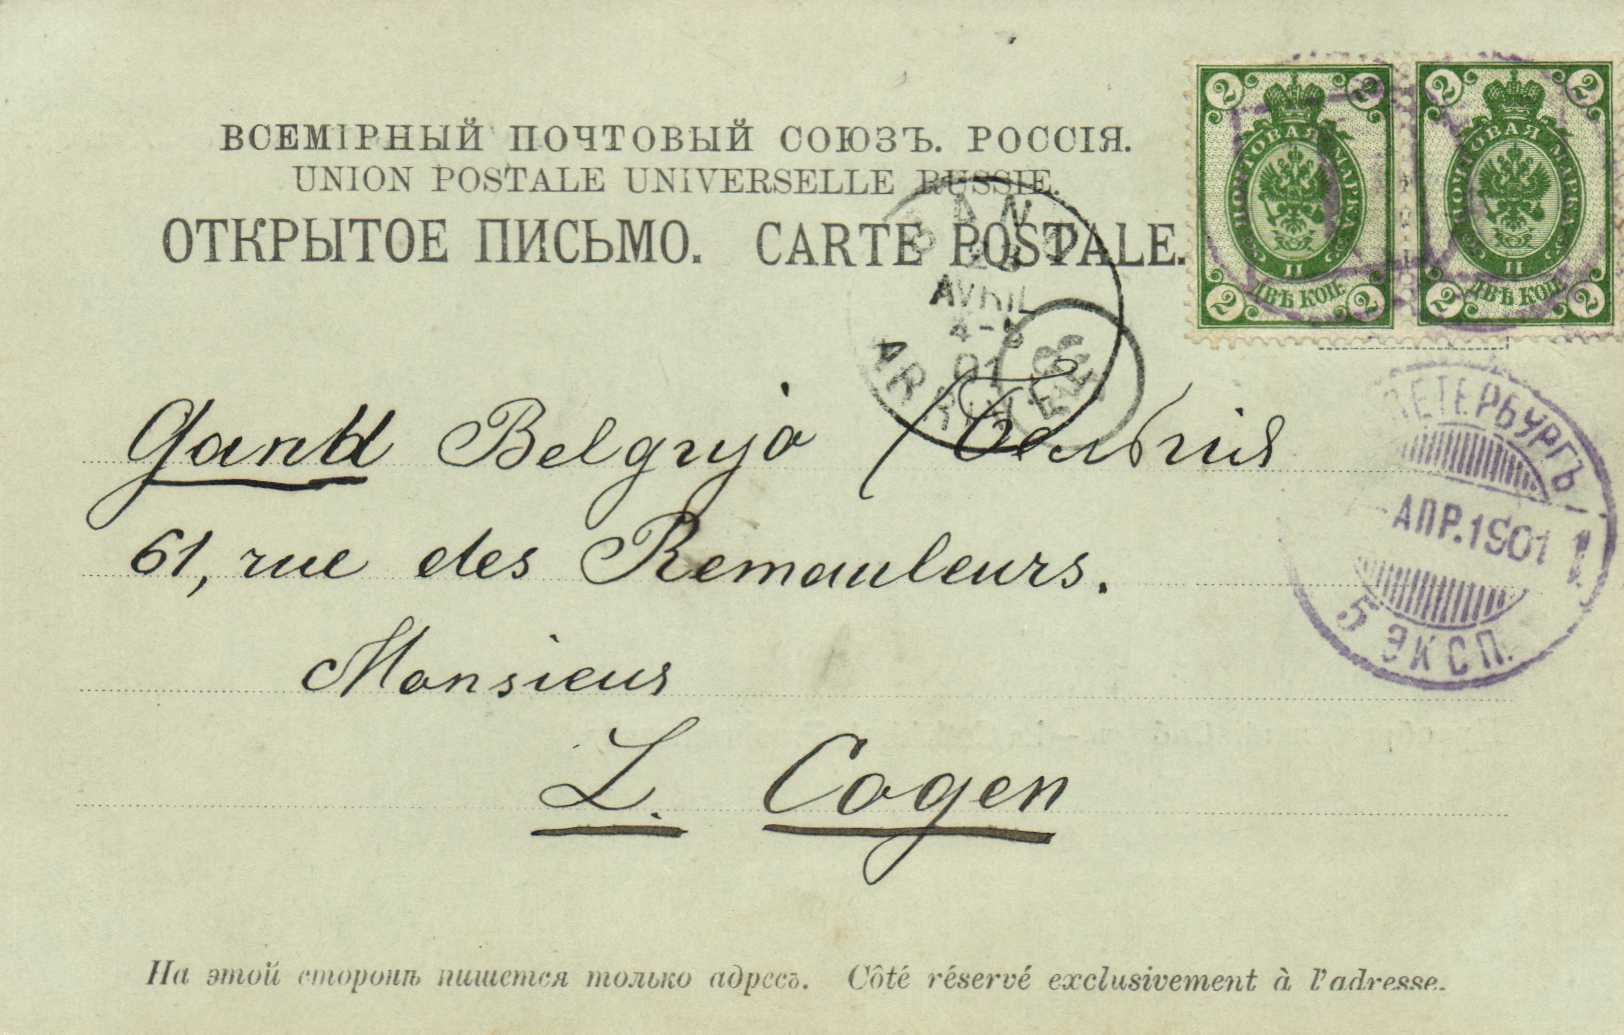 ВСЕМІРНЫЙ ПОЧТОВЫЙ СОЮЗЪ. РОССІЯ.
UNION POSTALE UNIVERSELLE RUSSIE.
ОТКРЫТОЕ ПИСЬМО. CARTE POSTALE.
2 2
ПОЧТОВАЯ МАРКА
II
ДВѢ КОП.
2 2
2 2
ПОЧТОВАЯ МАРКА
II
ДВѢ КОП.
2 2
GAND
AVRIL
4-5
01
Gand Belgija / Бельгія
61, rue des Remouleurs.
Monsieur
L. Cogen
ПЕТЕРБУРГЪ
АПР.1901
5 ЭКСП.
На этой сторонѣ пишется только адресъ. Côté réservé exclusivement à l'adresse.